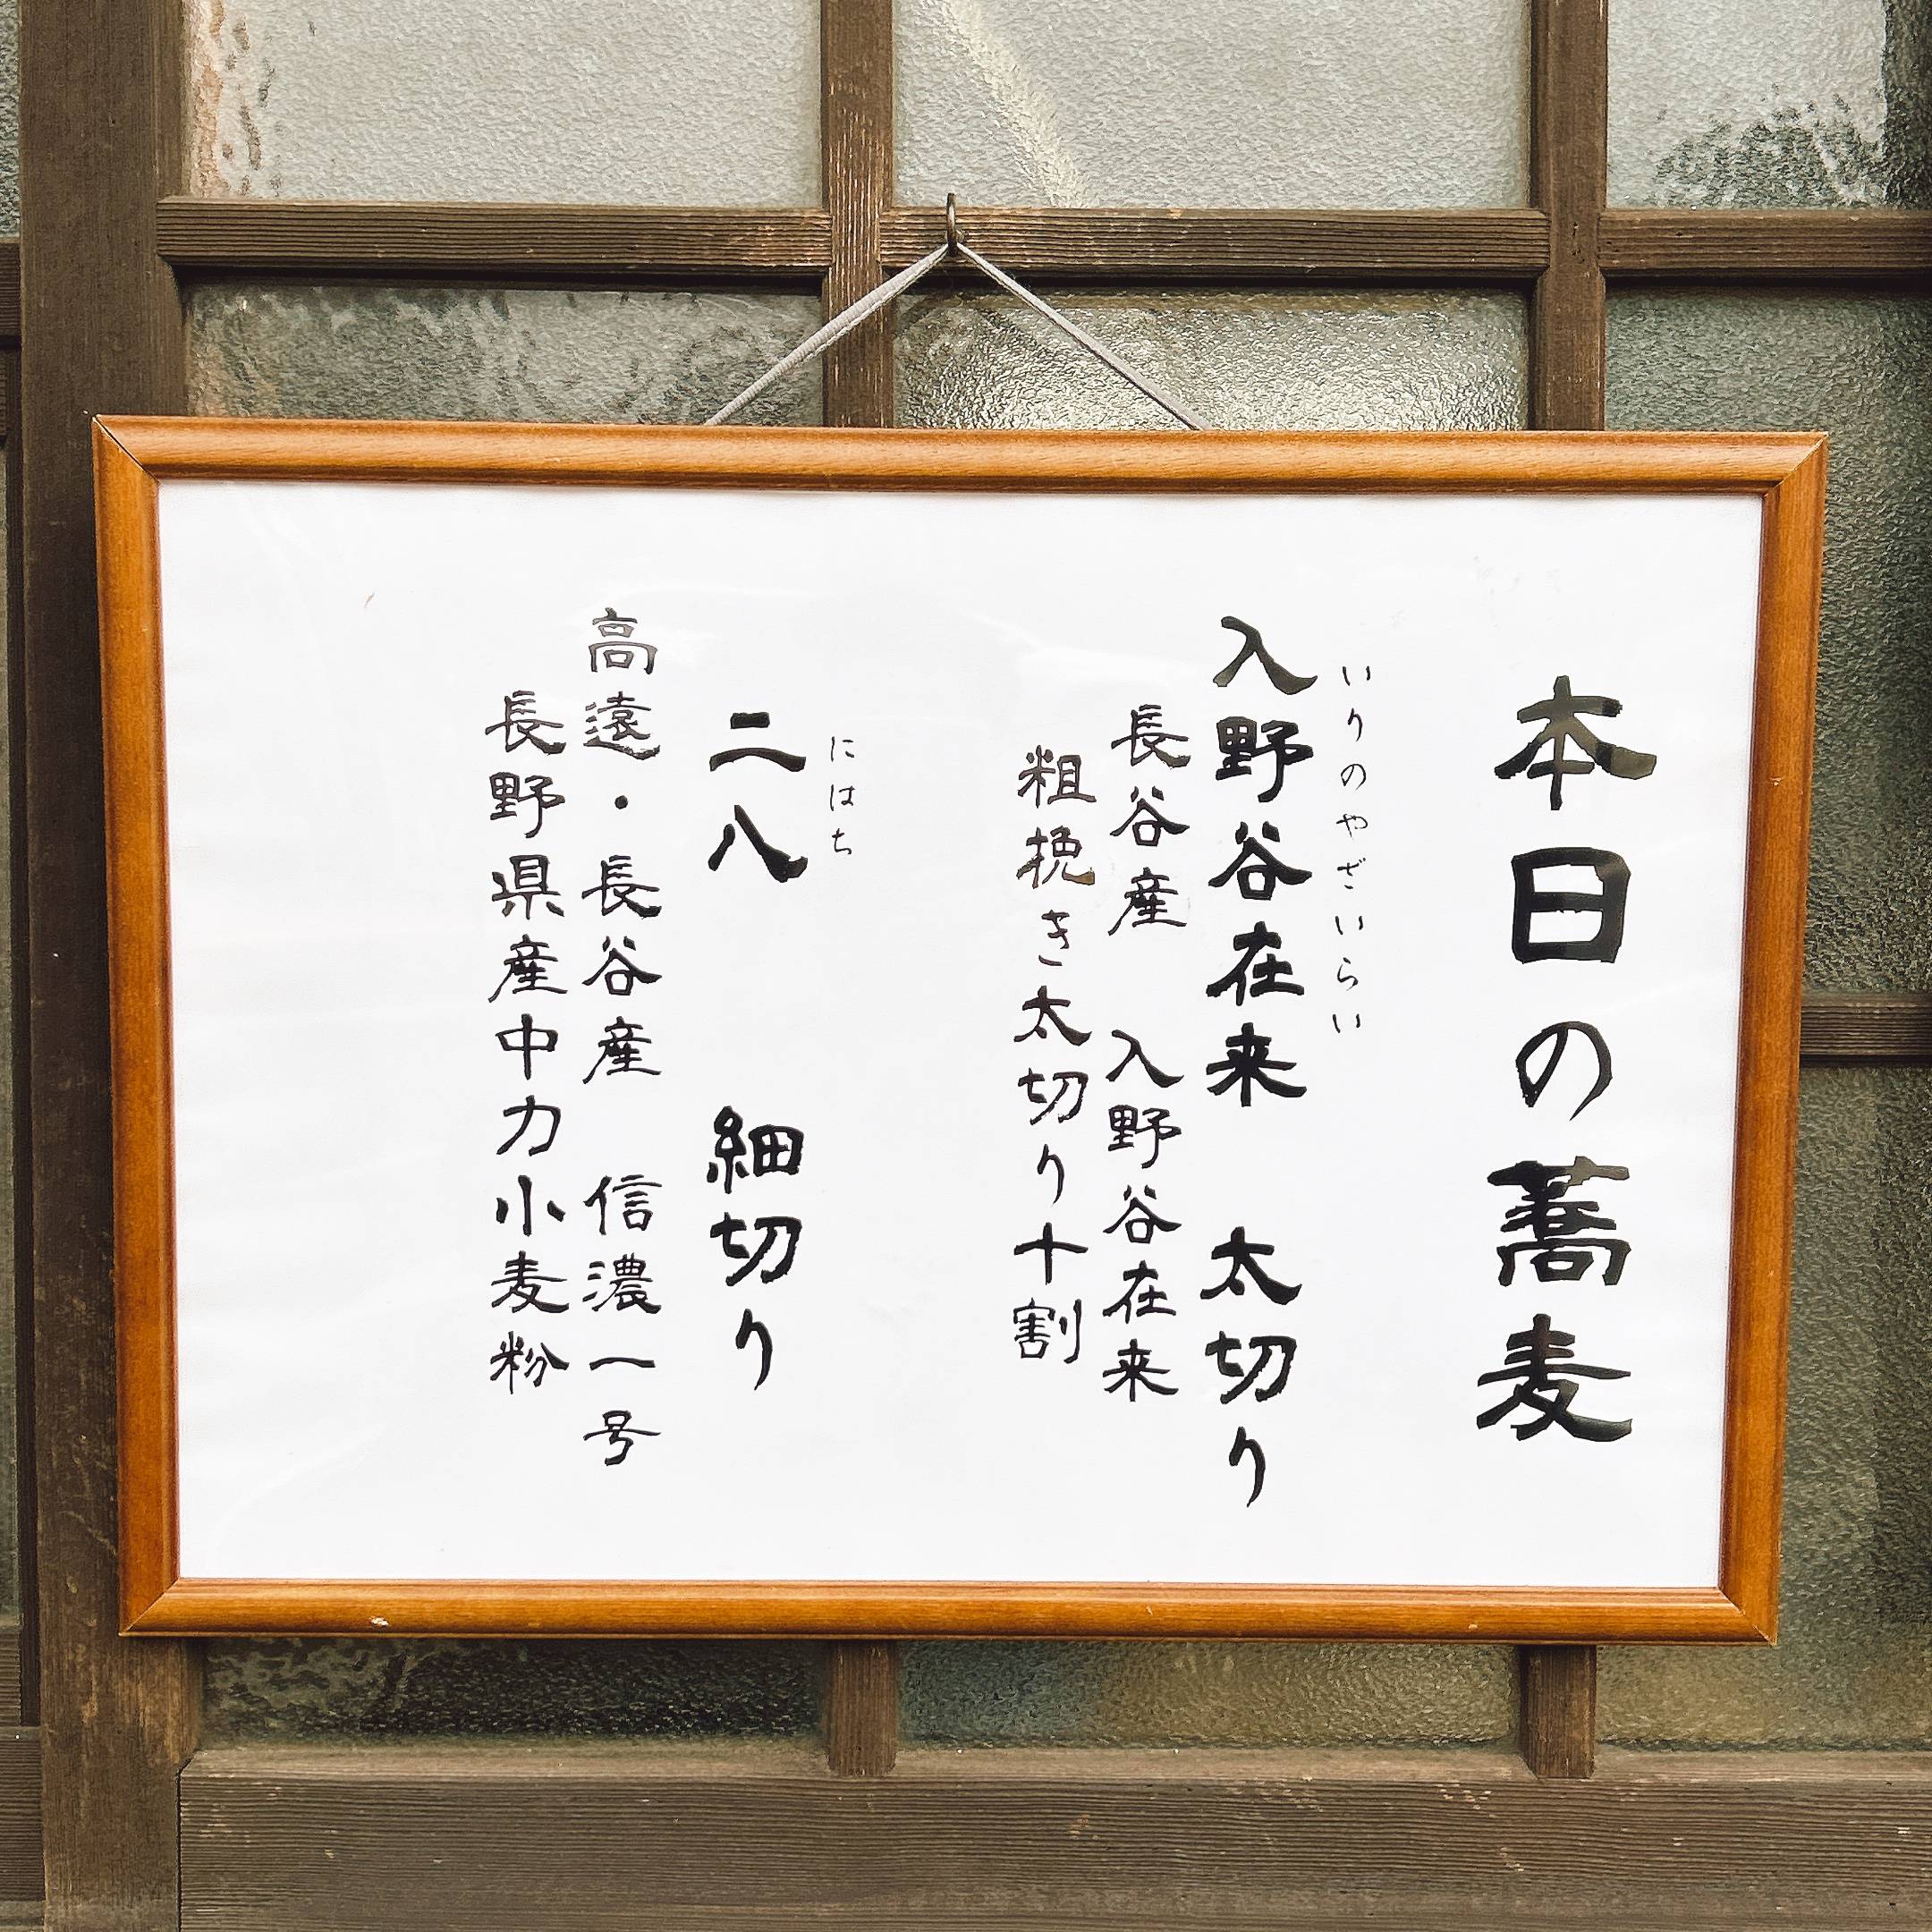 本日の蕎麦
いりのやざいらい
入野谷在来 太切り
長谷産 入野谷在来
粗挽き太切り十割
にはち
二八 細切り
高遠・長谷産 信濃一号
長野県産中力小麦粉